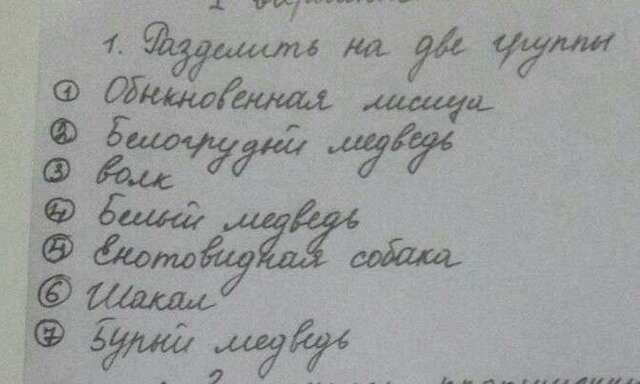 1. Разделить на две группы
1 Обыкновенная лисица
2 Белогрудый медведь
3 волк
4 Белый медведь
4 Енотовидная собака
6 Шакал
7 Бурый медведь